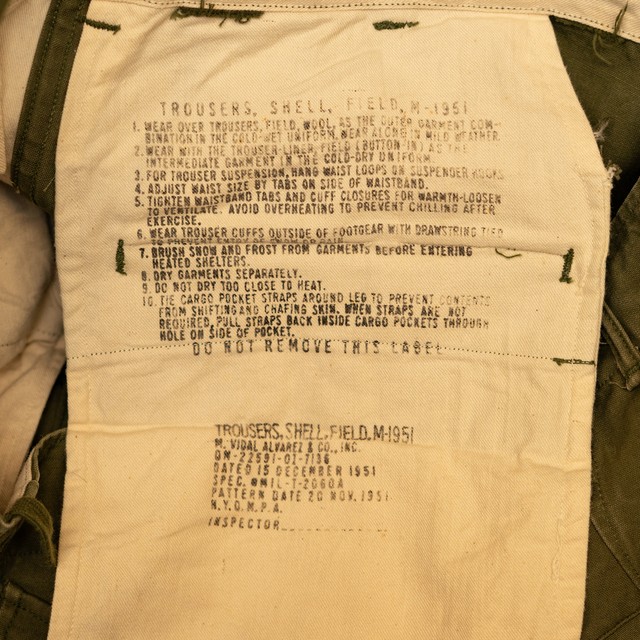 TROUSERS, SHELL, FIELD, M-1951
1. WEAR OVER TROUSERS, FIELD, WOOL, AS THE OUTER GARMENT COM-
BINATION IN THE COLD-WET UNIFORM. WEAR ALONE IN MILD WEATHER.
2. WEAR WITH THE TROUSER-LINER, FIELD (BUTTON-IN) AS THE
INTERMEDIATE GARMENT IN THE COLD-DRY UNIFORM.
3. FOR TROUSER SUSPENSION, HANG WAIST LOOPS ON SUSPENDER HOOKS.
4. ADJUST WAIST SIZE BY TABS ON SIDE OF WAISTBAND.
5. TIGHTEN WAISTBAND TABS AND CUFF CLOSURES FOR WARMTH-LOOSEN
TO VENTILATE. AVOID OVERHEATING TO PREVENT CHILLING AFTER
EXERCISE.
6. WEAR TROUSER CUFFS OUTSIDE OF FOOTGEAR WITH DRAWSTRING TIED
TO PREVENT ENTRY OF SNOW OR RAIN.
7. BRUSH SNOW AND FROST FROM GARMENTS BEFORE ENTERING
HEATED SHELTERS.
8. DRY GARMENTS SEPARATELY.
9. DO NOT DRY TOO CLOSE TO HEAT.
10. TIE CARGO POCKET STRAPS AROUND LEG TO PREVENT CONTENTS
FROM SHIFTING AND CHAFING SKIN. WHEN STRAPS ARE NOT
REQUIRED, PULL STRAPS BACK INSIDE CARGO POCKETS THROUGH
HOLE ON SIDE OF POCKET.
DO NOT REMOVE THIS LABEL
TROUSERS, SHELL, FIELD, M-1951
M. VIDAL ALVAREZ & CO., INC.
QM-22591-OI-7136
DATED 15 DECEMBER 1951
SPEC. MIL-T-2060A
PATTERN DATE 20 NOV. 1951
N.Y.Q.M.P.A.
INSPECTOR